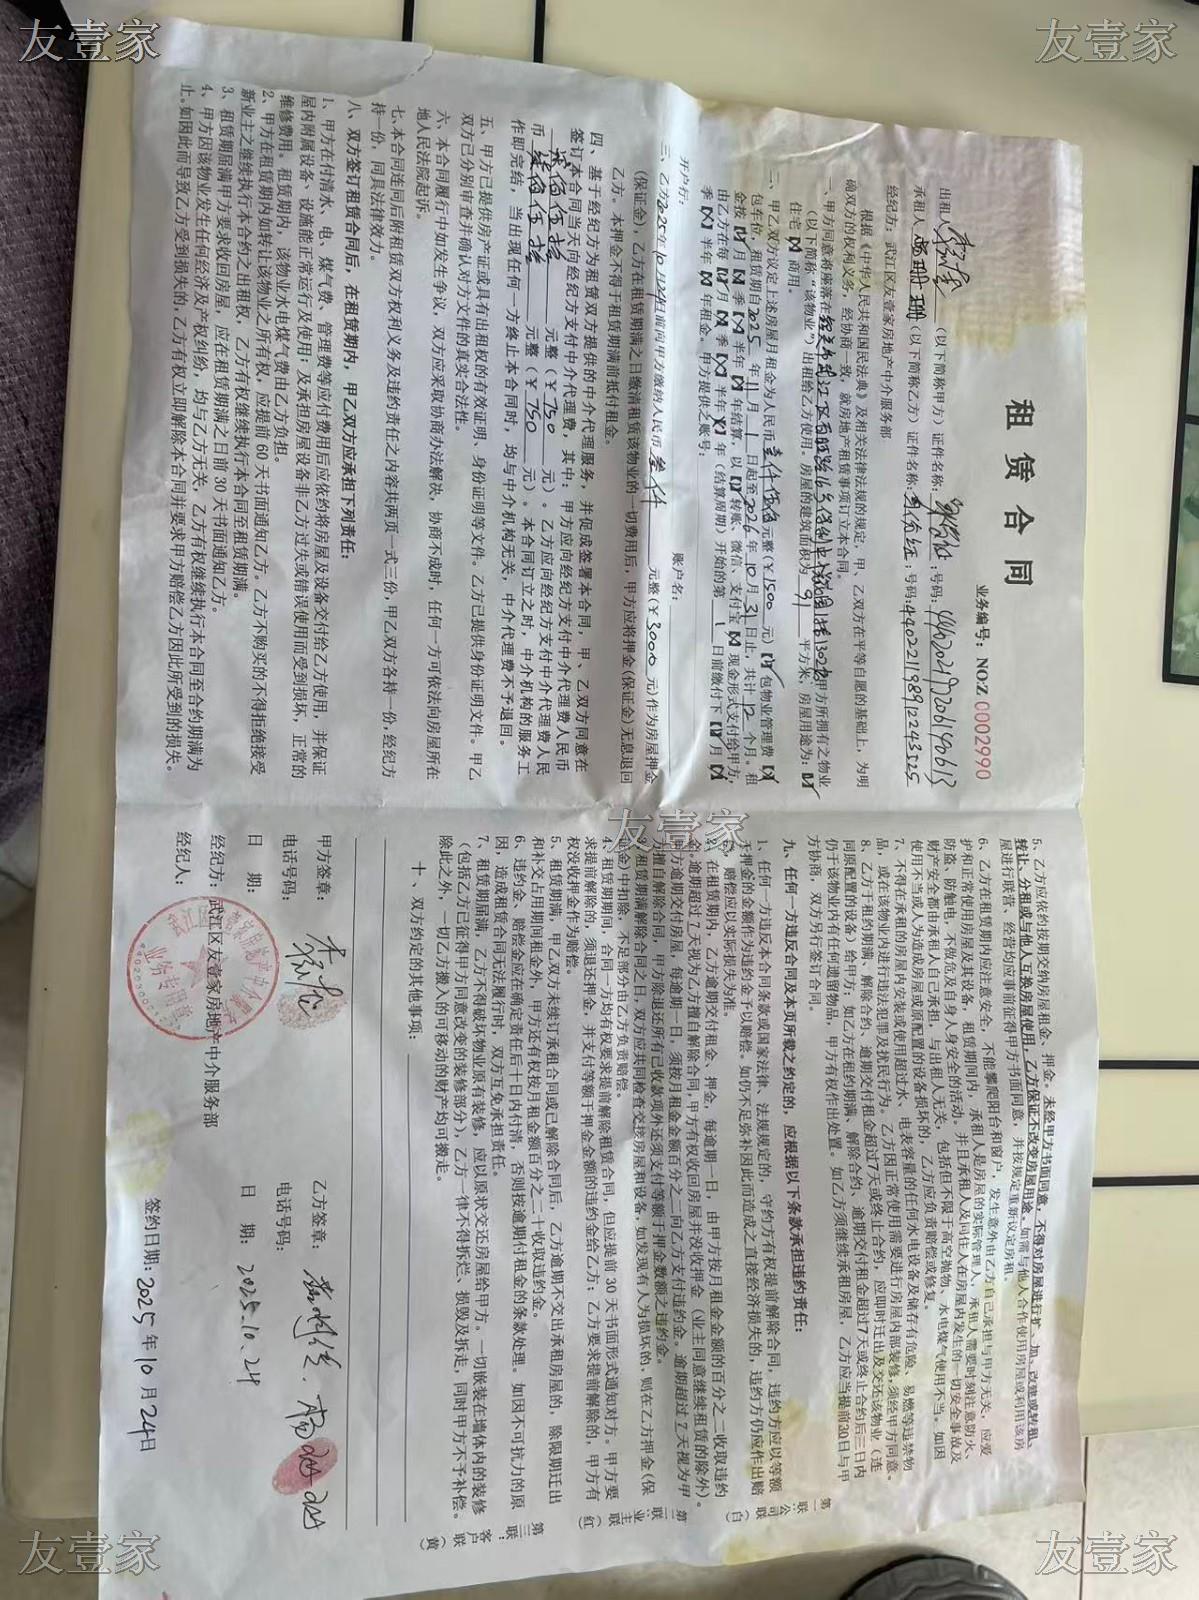 友壹家
友壹家
租 赁 合 同
业务编号：NO:Z 0002990
（以下简称甲方）证件名称：
；号码：
承租人
（以下简称乙方）证件名称：
；号码：
经纪方：武江区友壹家房地产中介服务部
根据《中华人民共和国民法典》及相关法律法规的规定，甲、乙双方在平等自愿的基础上，为明
确双方的权利义务，经协商一致，就房地产租赁事项订立本合同。
一、甲方同意将座落在
甲方所拥有之物业
（以下简称“该物业”）出租给乙方使用。房屋的建筑面积为 91 平方米，房屋用途为：
住宅 商用。
二、甲乙双方议定上述房屋月租金为人民币壹仟伍佰元整(￥1500 元) 包物业管理费
包车位，租赁期自2025 年 11 月 1 日起至2026 年 10 月 31 日止，共计 12 个月。租
金按 月 季 半年 年结算，以 转账、微信、支付宝 现金形式支付给甲方，
由乙方在每 月 季 半年 年（结算周期）开始的第 1 日前缴付下 月
季 半年 年租金。甲方提供之账号：
开户行： 账户名：
三、乙方2025年10月24日前向甲方缴纳人民币 叁仟 元整(￥3000 元)作为房屋押金
(保证金)，乙方在租赁期满之日缴清租赁该物业的一切费用后，甲方应将押金(保证金)无息退回
乙方。本押金不得于租赁期满前抵付租金。
四、基于经纪方为租赁双方提供的中介代理服务，并促成签署本合同，甲、乙双方同意在
签订本合同当天向经纪方支付中介代理费，其中：甲方应向经纪方支付中介代理费人民币
柒佰伍拾 元整（￥750 元）。乙方应向经纪方支付中介代理费人民
币 柒佰伍拾 元整（￥750 元）。本合同订立之时，中介机构的服务工
作即完结，当出现任何一方终止本合同时，均与中介机构无关，中介代理费不予退回。
五、甲方已提供房产证或具有出租权的有效证明、身份证明等文件。乙方已提供身份证明文件。甲乙
双方已分别审查并确认对方文件的真实合法性。
六、本合同履行中如发生争议，双方应采取协商办法解决，协商不成时，任何一方可依法向房屋所在
地人民法院起诉。
七、本合同连同后附租赁双方权利义务及违约责任之内容共两页一式三份，甲乙双方各持一份，经纪方
持一份，同具法律效力。
八、双方签订租赁合同后，在租赁期内，甲乙双方应承担下列责任：
1、甲方在付清水、电、煤气费、管理费等应付费用后应依约将房屋及设备交付给乙方使用，并保证
屋内附属设备、设施能正常运行及使用；及承担房屋设备非乙方过失或错误使用而受到损坏，正常的
维修费用。租赁期内，该物业水电煤气费由乙方负担。
2、甲方在租赁期内如转让该物业之所有权，应提前 60 天书面通知乙方。乙方不购买的不得拒绝接受
新业主之继续执行本合约之出租权，乙方有权继续执行本合同至租赁期满。
3、租赁期届满甲方要求收回房屋，应在租赁期满之日前 30 天书面通知乙方。
4、甲方因该物业发生任何经济及产权纠纷，均与乙方无关，乙方有权继续执行本合同至合约期满为
止。如因此而导致乙方受到损失的，乙方有权立即解除本合同并要求甲方赔偿乙方因此所受到的损失。
友壹家
5、乙方应依约按期交纳房屋租金、押金。未经甲方书面同意，不得对房屋进行扩、加、改建或转租、
转让、分租或与他人互换房屋使用，乙方保证不改变房屋用途。如需与他人合作使用房屋或利用该房
屋进行联营、经营均应事前征得甲方书面同意，并按规定重新议定房租。
6、乙方在租赁期内应注意安全，不能攀爬阳台和窗户，发生意外由乙方自己承担与甲方无关，应爱
护和正常使用房屋及其设备，租赁期间内，承租人是房屋的实际管理人，承租人需要时刻注意防火、
防盗、防触电，不做危及自身人身安全的活动。并且承租人及同住人在房屋内发生的一切安全事故及
财产安全都由承租人自己承担，与出租人无关，包括但不限于高空抛物、水电煤气使用不当。如因
使用不当或人为造成房屋或原配置的设备损坏的，乙方应负责赔偿或修复。
7、不得在承租的房屋内安装或使用超过水、电表容量的任何水电设备及储存有危险、易燃等违禁物
品，或在该物业内进行违法犯罪及扰民行为。乙方因正常使用需要进行房屋内部装修，须经甲方同意。
8、乙方于租约期满、解除合约、逾期交付租金超过7天或终止合约，应即时迁出及交还该物业（连
同原配置的设备）给甲方；如乙方在租约期满、解除合约、逾期交付租金超过7天或终止合约后三日内
仍于该物业内有任何遗留物品，甲方有权作出处置。如乙方须继续承租房屋，乙方应当提前30日与甲
方协商，双方另行签订合同。
九、任何一方违反合同及本页所载之约定的，应根据以下条款承担违约责任：
1、任何一方违反本合同条款或国家法律、法规规定的，守约方有权提前解除合同，违约方应以等额
于押金的金额作为违约金予以赔偿。如仍不足弥补因此而造成之直接经济损失的，违约方仍应作出赔
偿，赔偿应以实际损失为准。
2、在租赁期内，乙方逾期交付租金、押金，每逾期一日，由甲方按月租金金额的百分之二收取违约
金。逾期超过 7 天视为乙方擅自解除合同，甲方有权收回房屋并没收押金（业主同意继续租赁的除外）。
甲方逾期交付房屋，每逾期一日，须按月租金金额百分之二向乙方支付违约金。逾期超过 7 天视为甲
方擅自解除合同，甲方除退还所有已收款项外还须支付等额于押金数额之违约金。
3、租赁期满解除合同之日，双方应共同检查交接房屋和设备，如发现有人为损坏的，则在乙方押金(保
证金)中扣除，不足部分由乙方负责赔偿。
4、租赁期期间，合同一方均有权要求提前解除租赁合同，但应提前 30 天书面形式通知对方。甲方要
求提前解除的，须退还押金，并支付等额于押金金额的违约金给乙方；乙方要求提前解除的，甲方有
权没收押金作为赔偿。
5、租赁期满，甲乙双方未续订承租合同或已解除合同后，乙方逾期不交出承租房屋的，除限期迁出
和补交占用期间租金外，甲方还有权按月租金额百分之二十收取违约金。
6、违约金、赔偿金应在确定责任后十日内付清，否则按逾期付租金的条款处理。如因不可抗力的原
因，造成租赁合同无法履行时，双方互免承担责任。
7、租赁期届满，乙方不得破坏物业原有装修，应以原状交还房屋给甲方。一切嵌装在墙体内的装修
（包括乙方已征得甲方同意改变的装修部分），乙方一律不得拆烂、损毁及拆走，同时甲方不予补偿。
除此之外，一切乙方搬入的可移动的财产均可搬走。
十、双方约定的其他事项：
第一联：公司（白）
第二联：业主（红）
第三联：客户（黄）
甲方签章：
乙方签章：
电话号码：
电话号码：
日 期：
日 期：2025.10.24
经纪方：武江区友壹家房地产中介服务部
业务专用章
经纪人：
签约日期：2025 年 10 月 24日
友壹家
友壹家